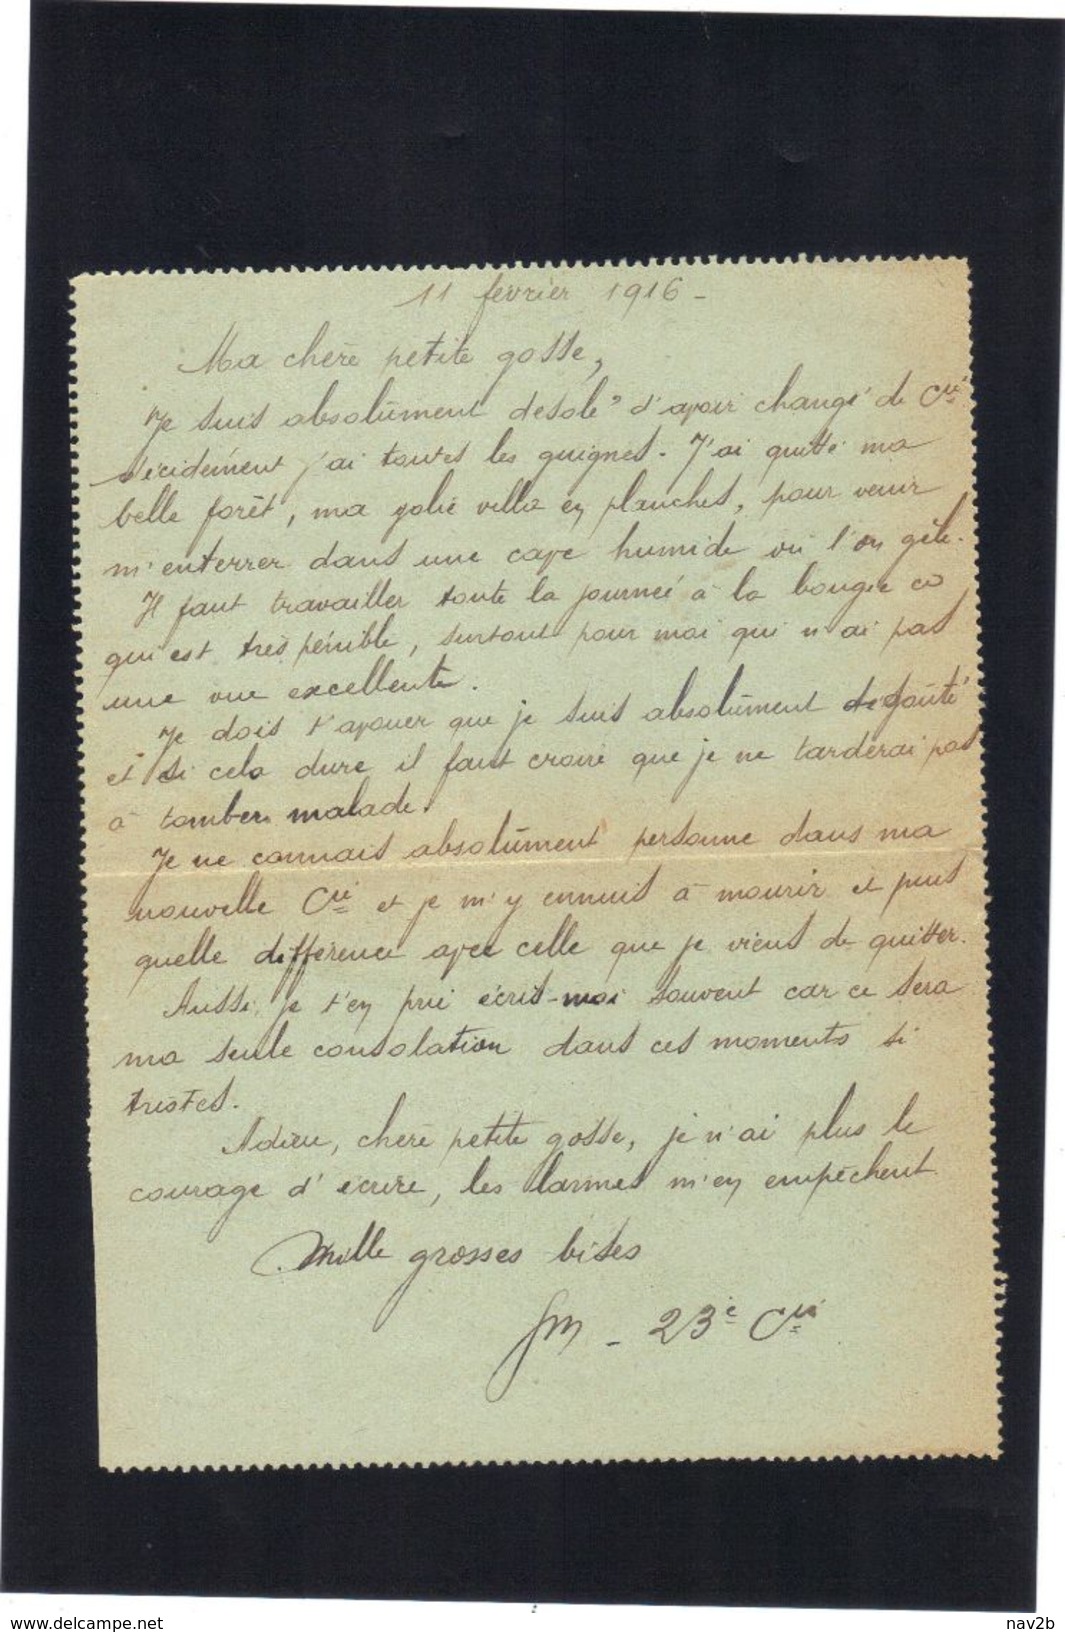 11 février 1916 -
Ma chère petite gosse,
Je suis absolument désolé d'avoir changé de Cie
décidément j'ai toutes les guignes. J'ai quitté ma
belle forêt, ma jolie villa en planches, pour venir
m'enterrer dans une cave humide où l'on gèle.
Il faut travailler toute la journée à la bougie ce
qui est très pénible, surtout pour moi qui n'ai pas
une vue excellente.
Je dois t'avouer que je suis absolument dégoûté
et si cela dure il faut croire que je ne tarderai pas
à tomber malade.
Je ne connais absolument personne dans ma
nouvelle Cie et je m'y ennuis à mourir et puis
quelle différence avec celle que je viens de quitter.
Aussi je t'en prie écris-moi souvent car ce sera
ma seule consolation dans ces moments si
tristes.
Adieu, chère petite gosse, je n'ai plus le
courage d'écrire, les larmes m'en empêchent
Mille grosses bises
- 23e Cie
www.delcampe.net
nav2b